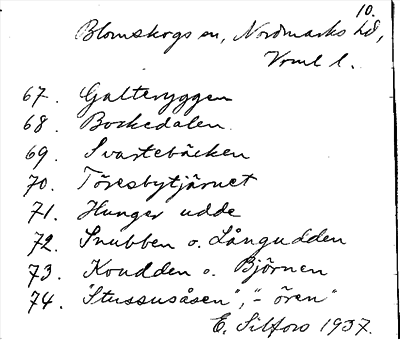 10.
Blomskogs sn, Nordmarks hd,
Vrml l.
67. Galteryggen
68. Bockedalen
69. Svartebäcken
70. Töresbytjärnet
71. Hunger udde
72. Snubben o. Långudden
73. Koudden o. Björnen
74. "Stussusåsen", "- ören"
E. Silfors 1937.